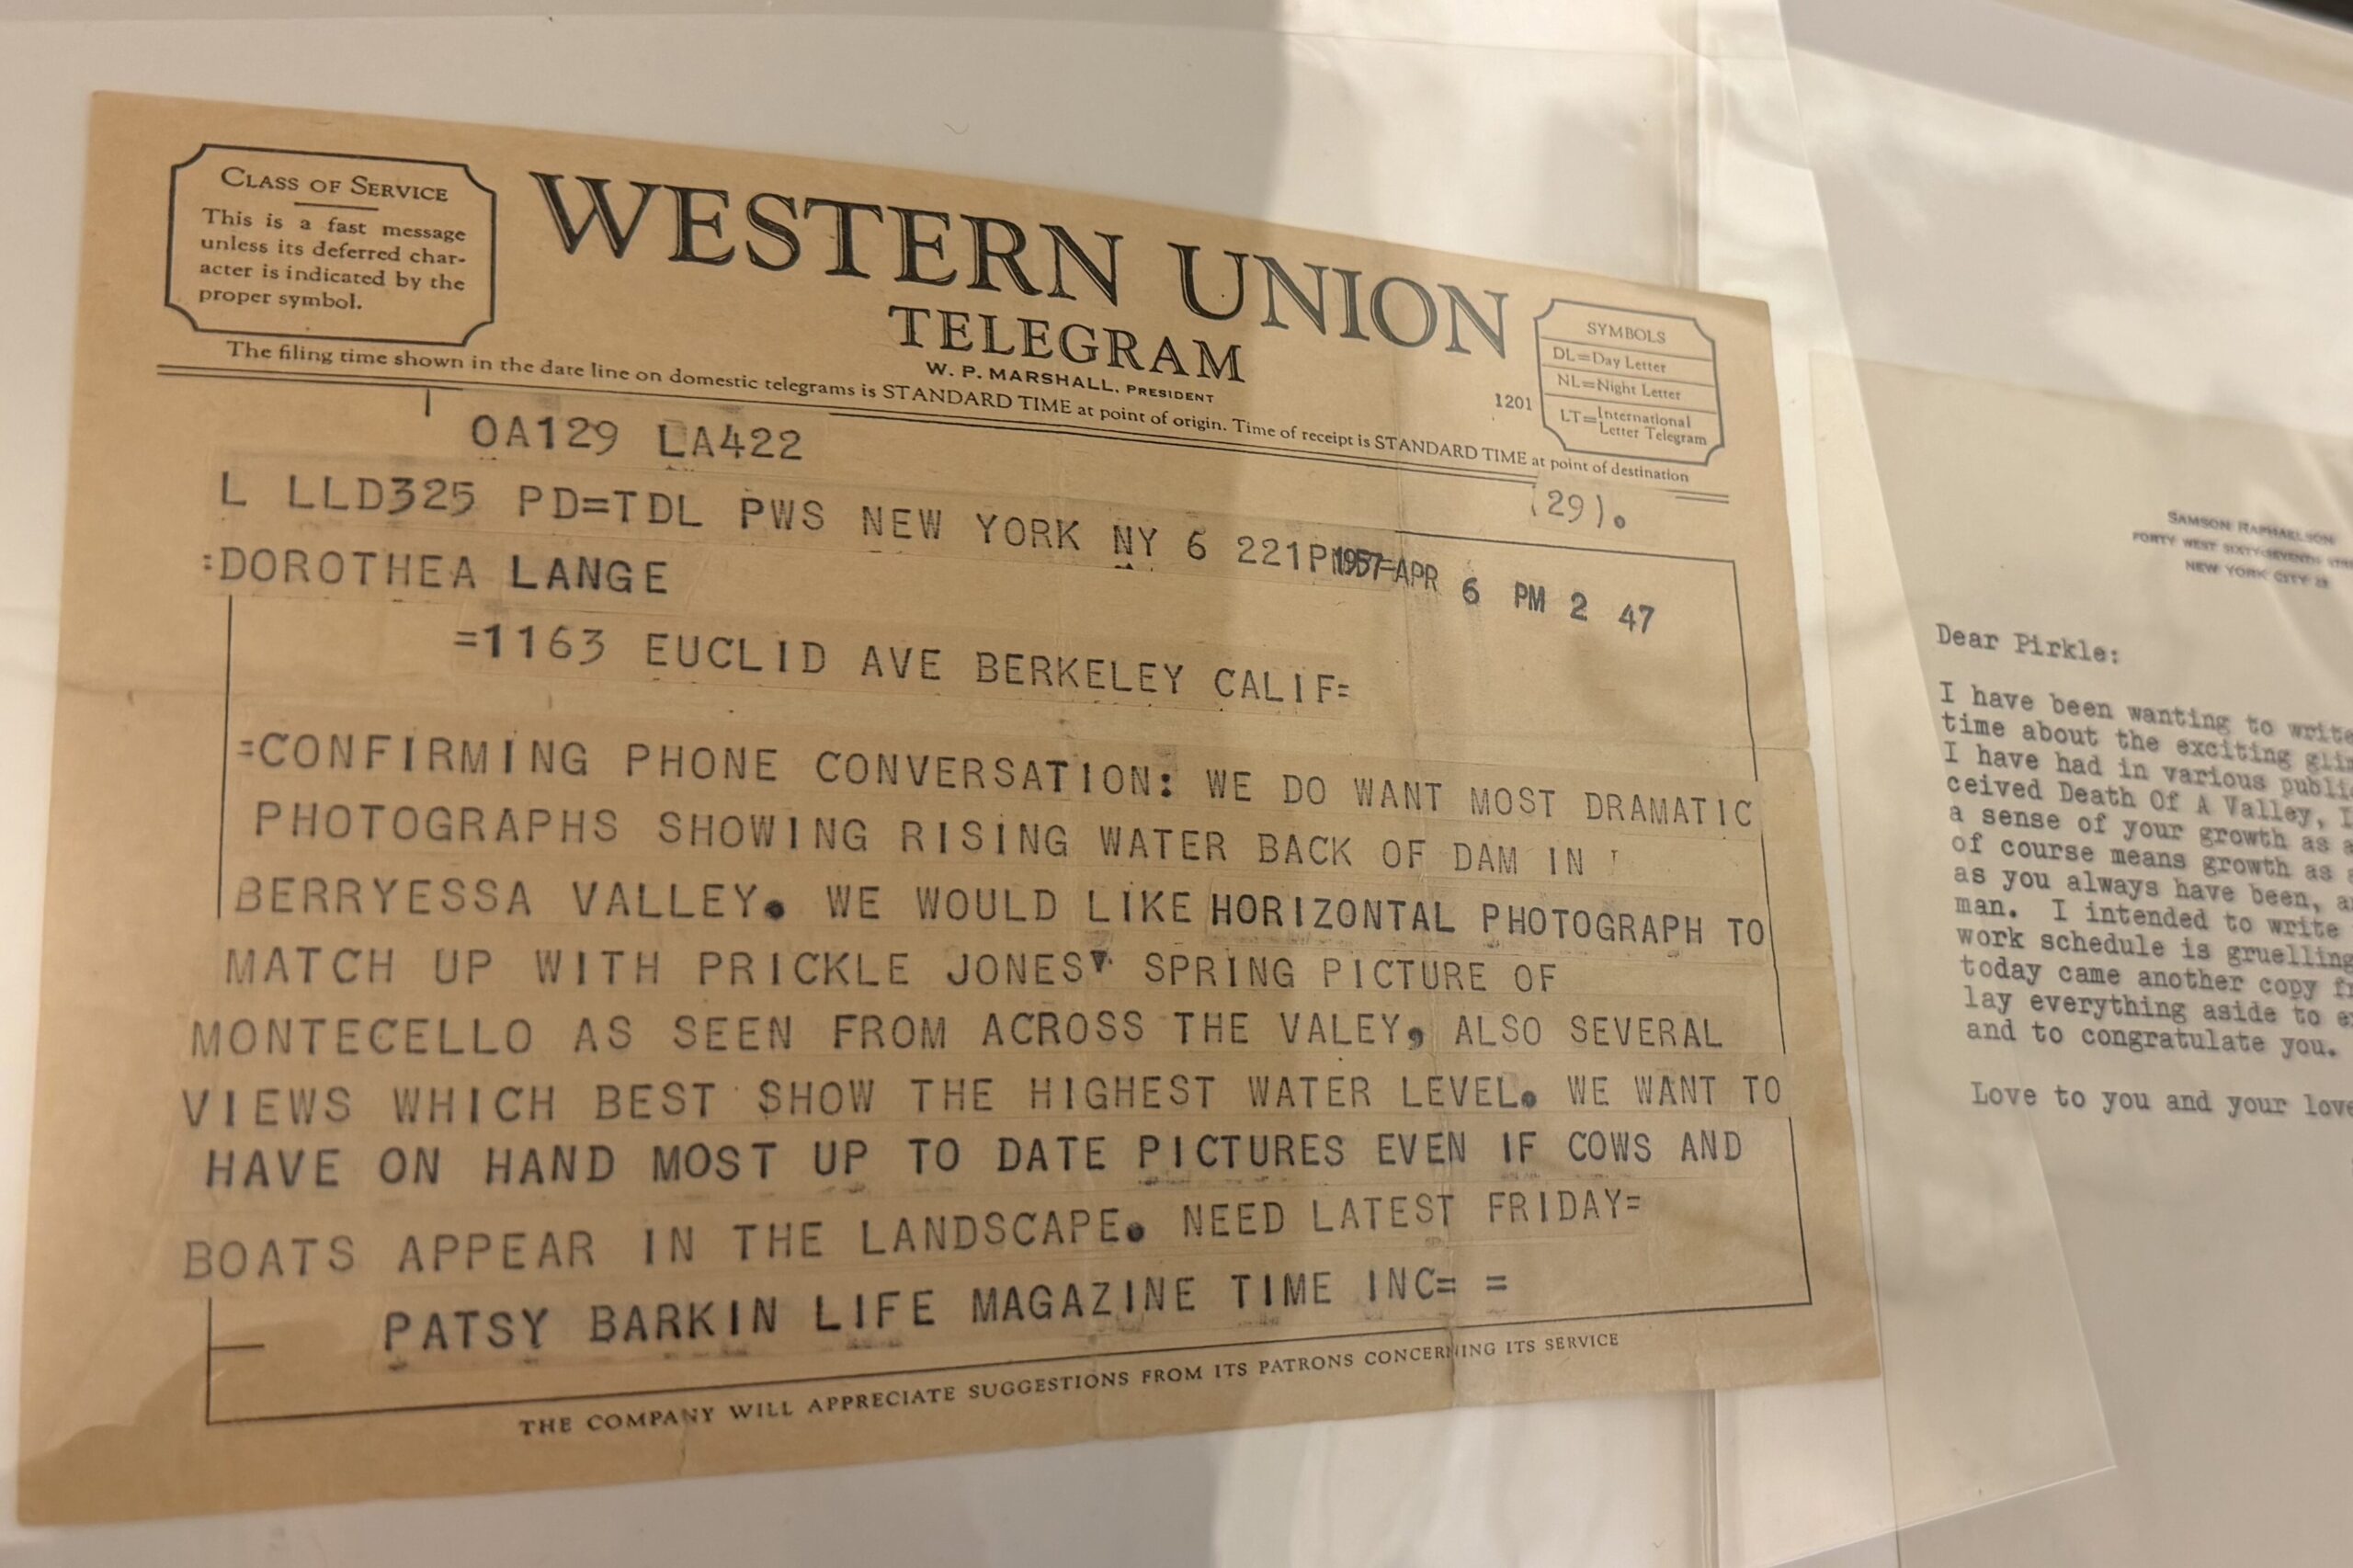 CLASS OF SERVICE
This is a fast message
unless its deferred char-
acter is indicated by the
proper symbol.
WESTERN UNION
TELEGRAM
W. P. MARSHALL, PRESIDENT
1201
SYMBOLS
DL=Day Letter
NL=Night Letter
LT=International Letter Telegram
The filing time shown in the date line on domestic telegrams is STANDARD TIME at point of origin. Time of receipt is STANDARD TIME at point of destination
OA129 LA422
(29).
L LLD325 PD=TDL PWS NEW YORK NY 6 221P 1957 APR 6 PM 2 47
:DOROTHEA LANGE
=1163 EUCLID AVE BERKELEY CALIF=
=CONFIRMING PHONE CONVERSATION: WE DO WANT MOST DRAMATIC
PHOTOGRAPHS SHOWING RISING WATER BACK OF DAM IN
BERRYESSA VALLEY. WE WOULD LIKE HORIZONTAL PHOTOGRAPH TO
MATCH UP WITH PRICKLE JONES' SPRING PICTURE OF
MONTECELLO AS SEEN FROM ACROSS THE VALEY, ALSO SEVERAL
VIEWS WHICH BEST SHOW THE HIGHEST WATER LEVEL. WE WANT TO
HAVE ON HAND MOST UP TO DATE PICTURES EVEN IF COWS AND
BOATS APPEAR IN THE LANDSCAPE. NEED LATEST FRIDAY=
PATSY BARKIN LIFE MAGAZINE TIME INC= =
THE COMPANY WILL APPRECIATE SUGGESTIONS FROM ITS PATRONS CONCERNING ITS SERVICE
SAMSON RAPHAELSON
FORTY WEST SIXTY-SEVENTH
NEW YORK CITY 23
Dear Pirkle:
I have been wanting to write
time about the exciting
I have had in various
ceived Death Of A Valley,
a sense of your growth as
of course means growth as
as you always have been,
man. I intended to write
work schedule is gruelling
today came another copy
lay everything aside to
and to congratulate you.
Love to you and your